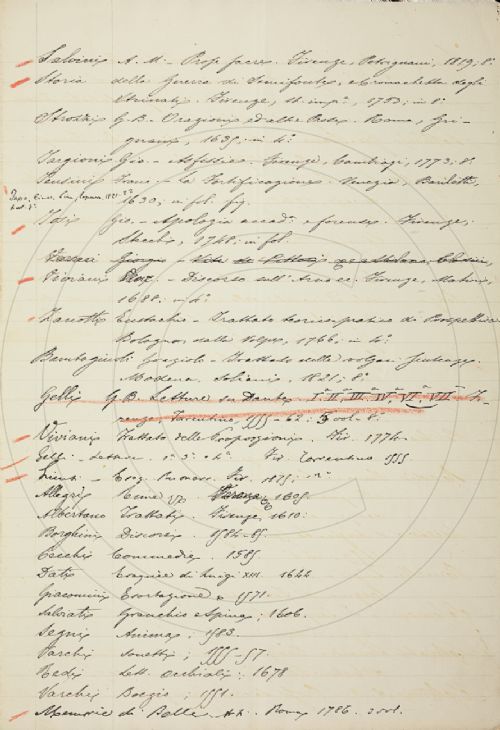 Salvini A. M. - Prose sacre. Firenze, 1819; 8.°
Storia della Guerra di Semifonte, e Cronichetta degli
Strinati. Firenze, st. imp., 1753; in 8.°
Strozzi G. B. - Orazioni ed altre Prose. Roma, Gri-
gnani, 1635; in 4.°
Targioni Gio. - Firenze, Cambiagi, 1773; 8.°
Tensini Franc. - La Fortificazione. Venezia, Bariletti,
1630; in fol. fig.
Gio. - Apologia Firenze;
Stecchi, 1748; in fol.
Vasari Giorgio - Vite de Pittori
Viviani - Discorso sull' Arno. Firenze,
1688; in 4.°
Zanotti Eustachio - Trattato teorico-pratico di Prospettiva
Bologna, dalla Volpe, 1766; in 4.°
Bambagiuoli Graziolo - Trattato delle volgari sentenze.
Modena, Soliani, 1821; 8.°
Gelli G. B. Letture su Dante. I.ª II.ª III.ª IV.ª VI.ª VII.ª Fi-
renze, 8.°
Viviani Trattato delle Proporzioni. Fir. 1774.
Gelli - Letture Fir. Torrentino 1555.
Fir. 1875;
Allegri Rime 1605.
Albertano Trattati. Firenze, 1610.
Borghini Discorsi. 1584-85.
Cecchi Commedie. 1585
Dati Esequie di Luigi XIII. 1644
Giacomini Esortazione 1571.
Salviati Granchio e Spina; 1606.
Segni Anima. 1583.
Varchi Sonetti; 1555-57.
Redi Lett. Occhiali. 1678
Varchi Boezio; 1551.
Memorie di Belle Arti. Roma 1786.